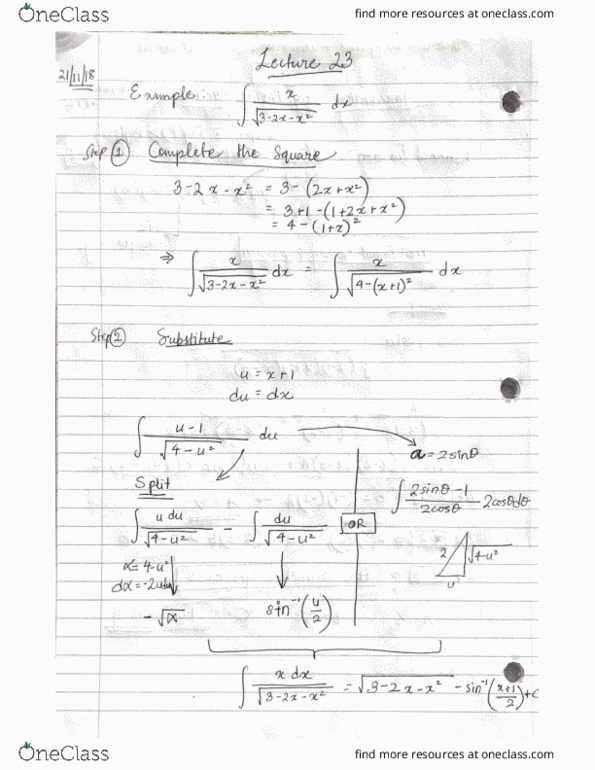 OneClass
find more resources at oneclass.com
Lecture 23
21/11/18
Example: ∫ x / √(3-2x-x²) dx
Step ① Complete the Square
3-2x-x² = 3-(2x+x²)
= 3+1-(1+2x+x²)
= 4-(1+x)²
⇒ ∫ x / √(3-2x-x²) dx = ∫ x / √(4-(x+1)²) dx
Step ② Substitute
u = x+1
du = dx
∫ (u-1) / √(4-u²) du
a = 2sinθ
Split
∫ u du / √(4-u²) - ∫ du / √(4-u²)
OR
∫ (2sinθ-1) / 2cosθ 2cosθdθ
2 √(4-u²)
u
α = 4-u²
dα = -2udu
-√α
sin⁻¹(u/2)
∫ x dx / √(3-2x-x²) = √(3-2x-x²) - sin⁻¹((x+1)/2)+C
OneClass
find more resources at oneclass.com